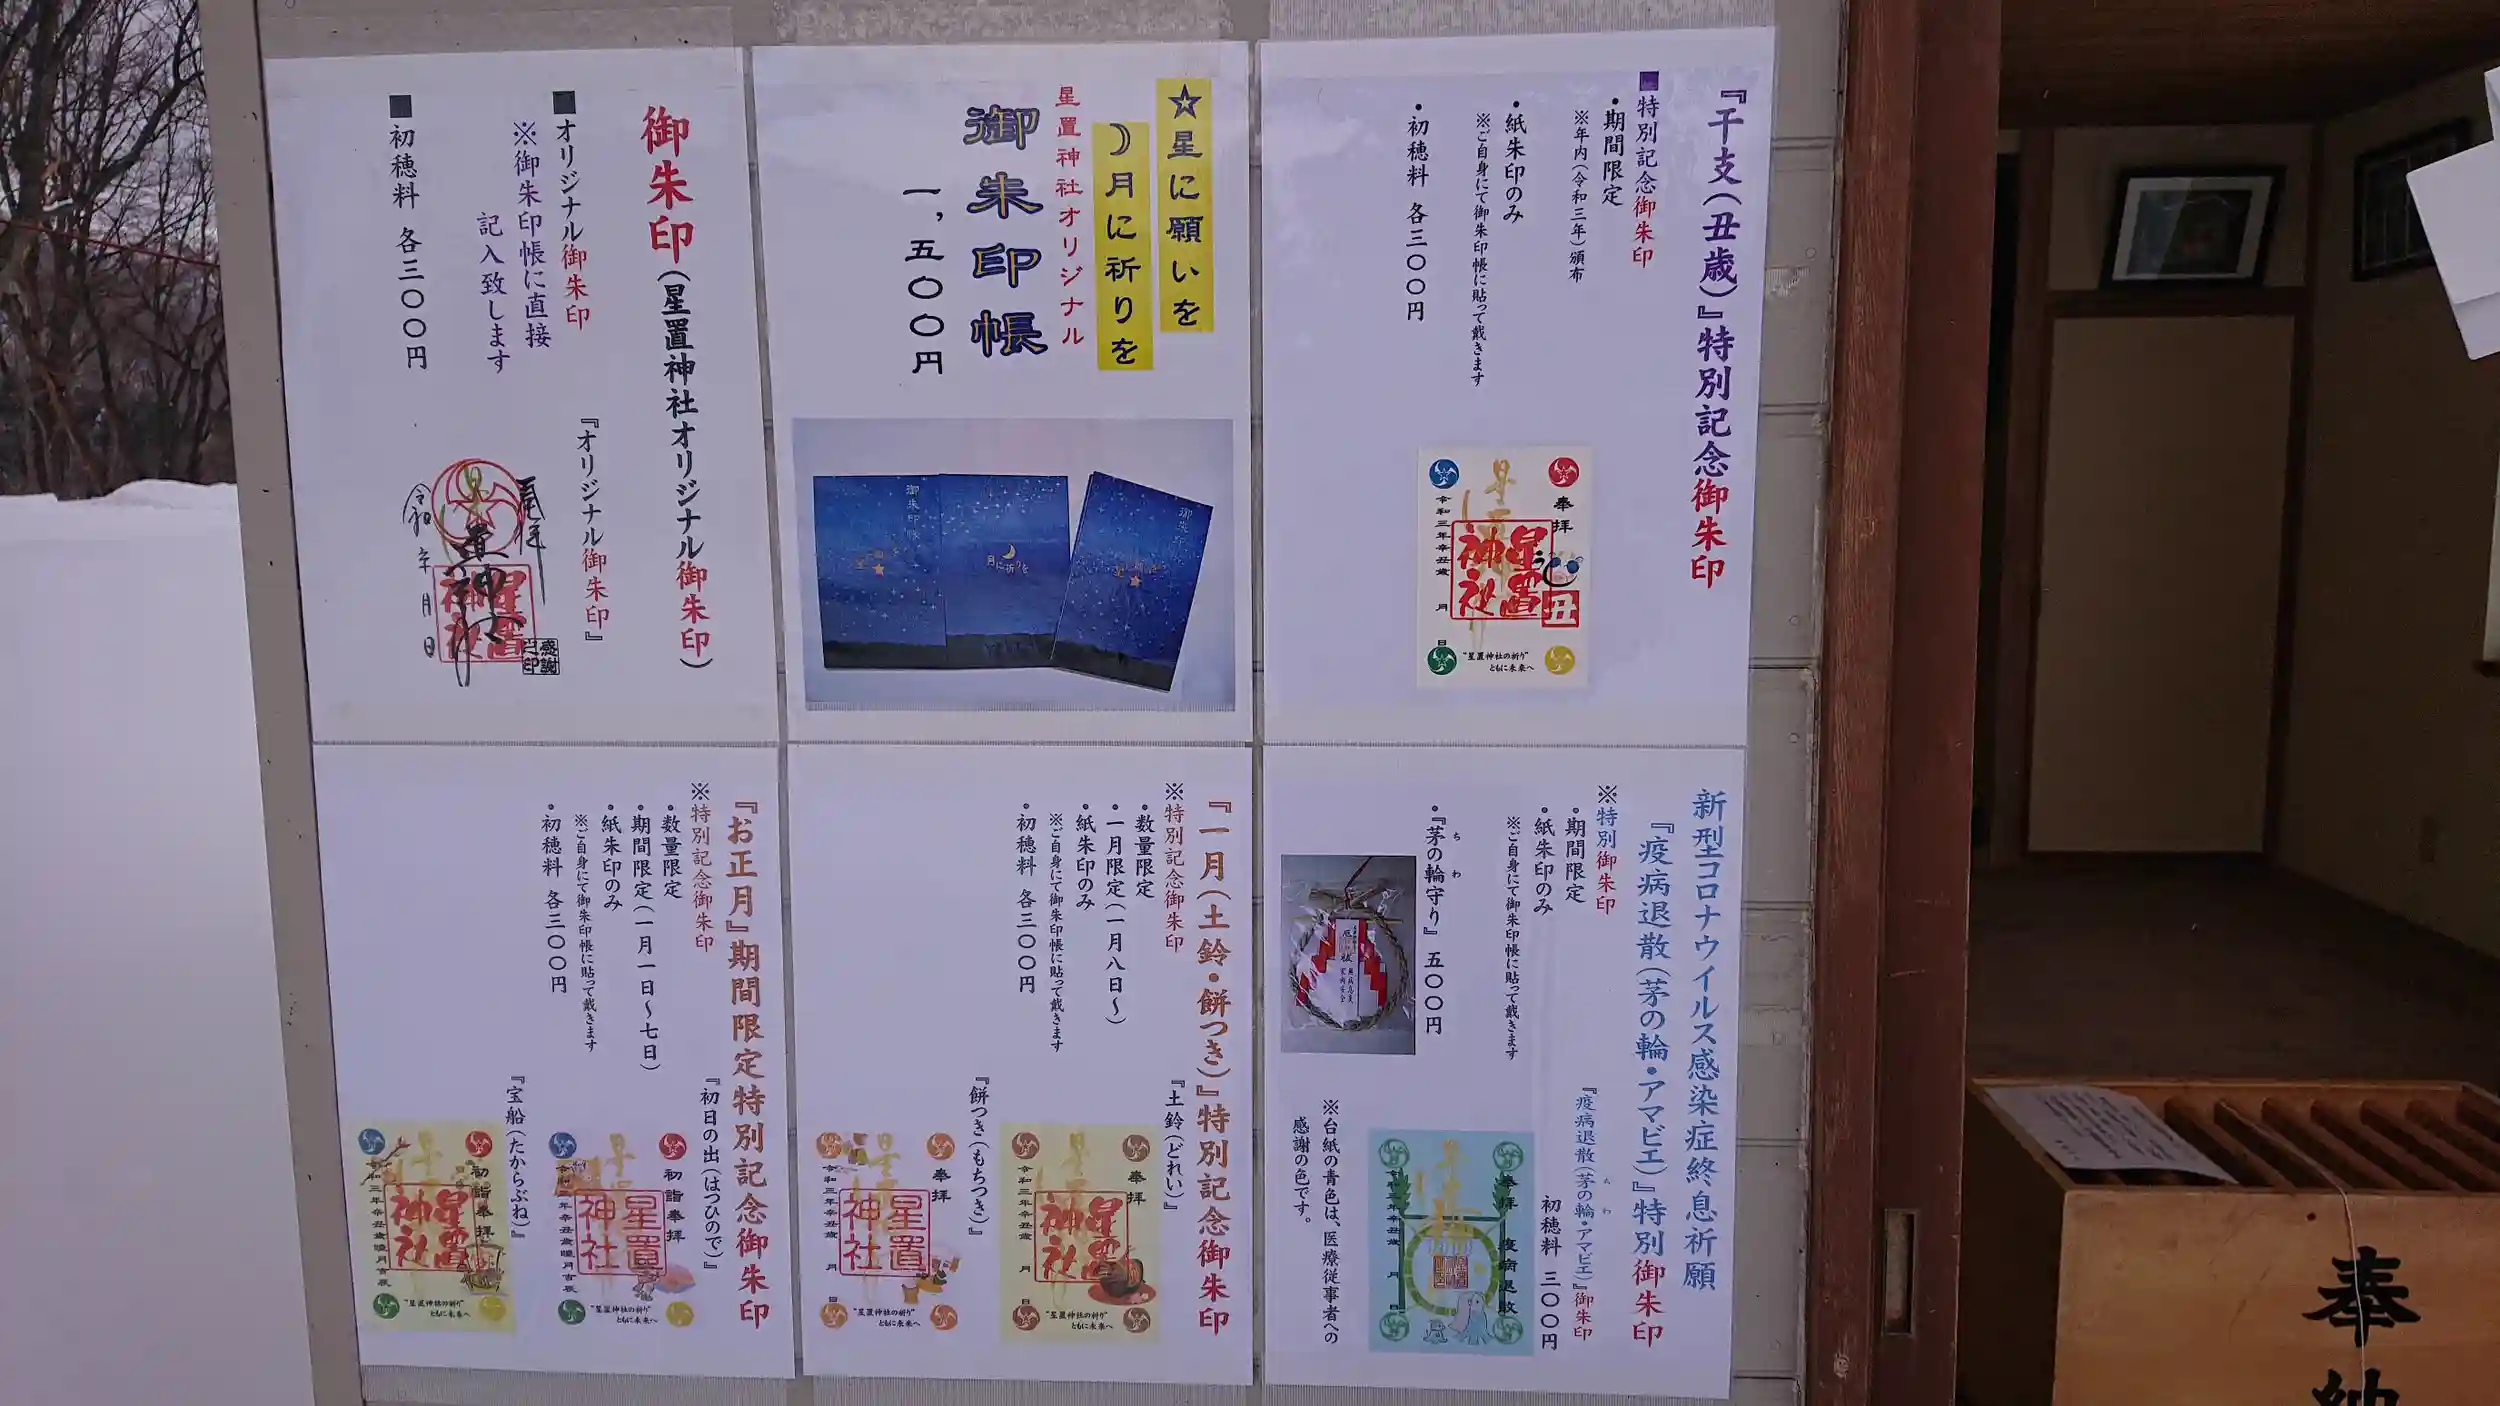 『干支(丑歳)』特別記念御朱印
■特別記念御朱印
・期間限定
※年内(令和三年)頒布
・紙朱印のみ
※ご自身にて御朱印帳に貼って戴きます
・初穂料 各三〇〇円
奉拝
星置神社
丑
令和三年辛丑歳 月 日
"星置神社の祈り"
ともに未来へ
☆星に願いを
☽月に祈りを
星置神社オリジナル
御朱印帳
一,五〇〇円
御朱印帳
月に祈りを
御朱印(星置神社オリジナル御朱印)
■オリジナル御朱印
※御朱印帳に直接
記入致します
■初穂料 各三〇〇円
『オリジナル御朱印』
令和 年 月 日
星置神社
感謝
新型コロナウイルス感染症終息祈願
『疫病退散(茅の輪・アマビエ)』特別御朱印
※特別御朱印
・期間限定
・紙朱印のみ
※ご自身にて御朱印帳に貼って戴きます
・『茅の輪守り』 五〇〇円
ちわ
『疫病退散(茅の輪・アマビエ)』御朱印
ちわ
初穂料 三〇〇円
※台紙の青色は、医療従事者への
感謝の色です。
奉拝
疫病退散
令和三年辛丑歳 月 日
『一月(土鈴・餅つき)』特別記念御朱印
※特別記念御朱印
・数量限定
・一月限定(一月八日~)
・紙朱印のみ
※ご自身にて御朱印帳に貼って戴きます
・初穂料 各三〇〇円
『土鈴(どれい)』
奉拝
星置神社
令和三年辛丑歳 月 日
"星置神社の祈り"
ともに未来へ
『餅つき(もちつき)』
奉拝
星置神社
令和三年辛丑歳 月 日
"星置神社の祈り"
ともに未来へ
『お正月』期間限定特別記念御朱印
※特別記念御朱印
・数量限定
・期間限定(一月一日~七日)
・紙朱印のみ
※ご自身にて御朱印帳に貼って戴きます
・初穂料 各三〇〇円
『初日の出(はつひので)』
初詣奉拝
星置神社
令和三年辛丑歳睦月吉辰
"星置神社の祈り"
ともに未来へ
『宝船(たからぶね)』
初詣奉拝
星置神社
令和三年辛丑歳睦月吉辰
"星置神社の祈り"
ともに未来へ
奉納